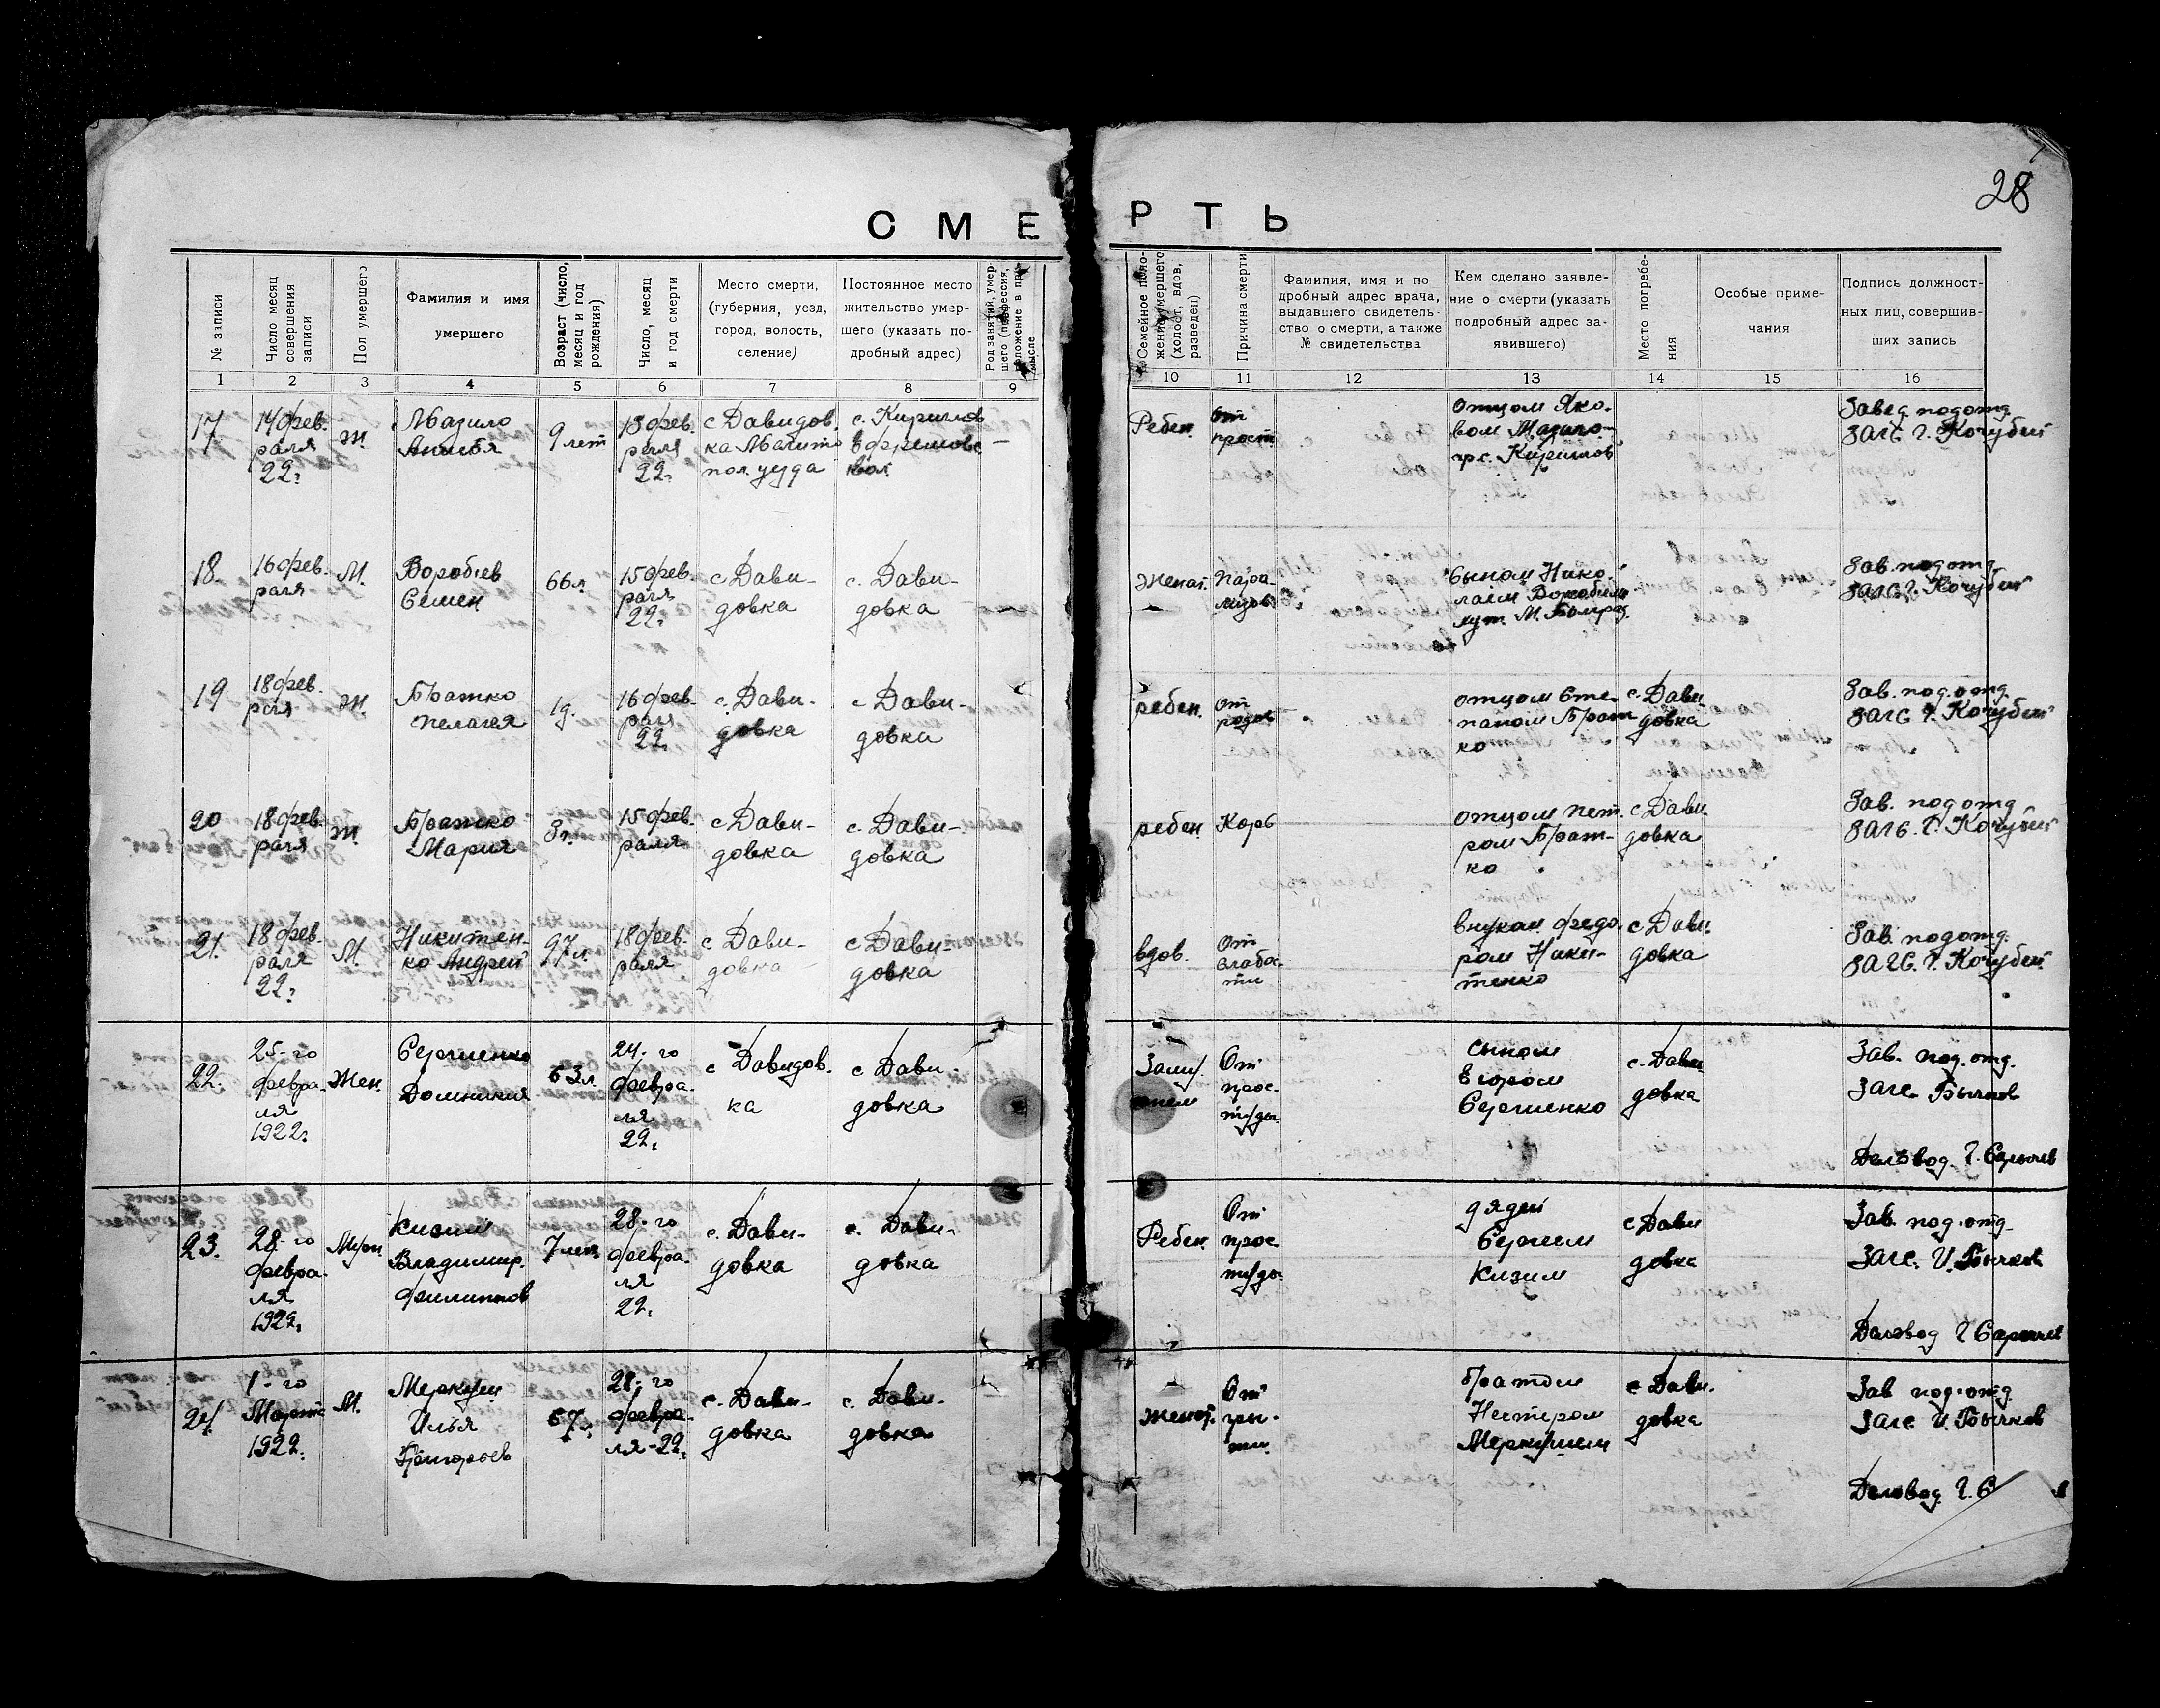 28
СМЕРТЬ
№ записи
Число месяц совершения записи
Пол умершего
Фамилия и имя
умершего
Возраст (число, месяц и год рождения)
Число, месяц и год смерти
Место смерти,
(губерния, уезд,
город, волость,
селение)
Постоянное место
жительство умер-
шего (указать по-
дробный адрес)
Род занятий, умер-
шего (профессия,
положение в про-
мысле
Семейное поло-
жение умершего
(холост, вдов,
разведен)
Причина смерти
Фамилия, имя и по
дробный адрес врача,
выдавшего свидетель-
ство о смерти, а также
№ свидетельства
Кем сделано заявле-
ние о смерти (указать
подробный адрес за-
явившего)
Место погребе-
ния
Особые приме-
чания
Подпись должност-
ных лиц, совершив-
ших запись
1 2 3 4 5 6 7 8 9 10 11 12 13 14 15 16
17
14 фев.
раля
22г
ж.
Мазило
9 лет
13 фев.
раля
22г
с Давидов.
ка
пол уезда
с. Кириллов
вол.
Ребен.
От
прост.
отцом Яко.
вом Мазило
Завед. подотд.
ЗАГС. Г. Кочубей
18.
16 фев.
раля
М.
Воробiев
Семен
66 л.
15 фев.
раля
22г
с Дави-
довка
с. Дави-
довка
Женат.
Пара-
сыном Нико.
лаем
Зав. подотд.
ЗАГС. Г. Кочубей
19
18 фев.
раля
ж.
Братко
Пелагея
1 г.
16 фев.
раля
22г
с. Дави-
довка
с Дави-
довка
ребен.
От
родов
отцом Сте-
паном Брат
ко
с. Дави.
довка
Зав. под. отд.
ЗАГС. Г. Кочубей
20
18 фев.
раля
ж.
Братко
Мария
3 г.
15 фев.
раля
с Дави-
довка
с. Дави-
довка
ребен
Корь
отцом Пет.
ром Брат-
ко
с Дави.
довка
Зав. под отд
ЗАГС. Г. Кочубей
21.
18 фев.
раля
22г
М.
Никитен-
ко Андрей
97 л.
18 фев.
раля
с Дави-
довка
с Дави-
довка
вдов.
От
слабо-
сти
внуком Федо.
ром Ники-
тенко
с Дави.
довка
Зав. подотд.
ЗАГС. Г. Кочубей
22.
25-го
февра.
ля
1922г
Жен.
Сергиенко
Домникия
63 л.
24-го
февра.
ля
22г
с Давидов.
ка
с Дави.
довка
От
прос-
туды
сыном
Егором
Сергиенко
с. Дави
довка
Зав. под. отд.
Загс. Бычков
Деловод.
23.
28-го
февра.
ля
1922г
Муж.
Кизим
Владимир
Филиппов
7 лет
28-го
февра.
ля
22г
с. Дави-
довка
с. Дави-
довка
Ребен.
От
прос
туды
дядей
Сергеем
Кизим
с Дави
довка
Зав. под. отд
Загс. И. Бычков
Деловод
24.
1-го
Марта
1922.
М.
Меркущ
Илья
Григорьев
67 л.
28-го
февра.
ля-22г
с. Дави-
довка
с. Дави.
довка
женат.
От
братом
Нестером
с Дави.
довка
Зав под. отд
Загс И. Бычков
Деловод. Г. С